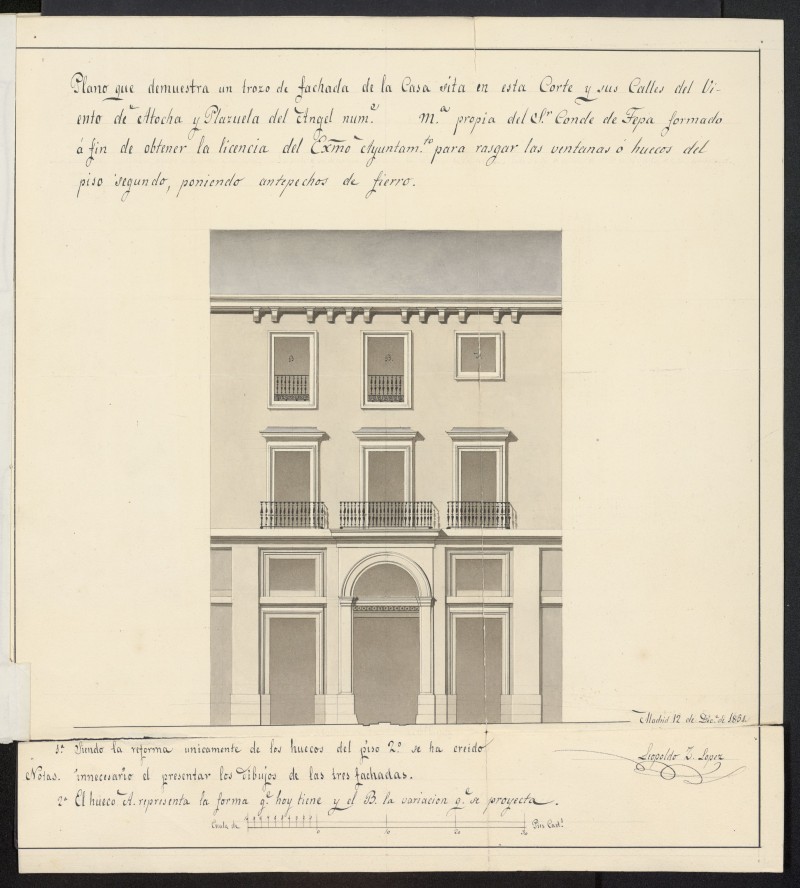 Plano que demuestra un trozo de fachada de la Casa sita en esta Corte y sus Calles del Vi-
ento de Atocha y Plazuela del Angel num.º M.ª propia del S.r Conde de Tepa formado
á fin de obtener la licencia del Exmo Ayuntam.to para rasgar las ventanas ó huecos del
piso segundo, poniendo antepechos de fierro.
B. B. A.
Madrid 12 de Dic.e de 1851.
Leopoldo Z. Lopez
1.ª Siendo la reforma unicamente de los huecos del piso 2.º se ha creido
Notas. innecesario el presentar los dibujos de las tres fachadas.
2ª El hueco A. representa la forma q.e hoy tiene y el B. la variacion q.e se proyecta.
Escala de Pies Cast.s